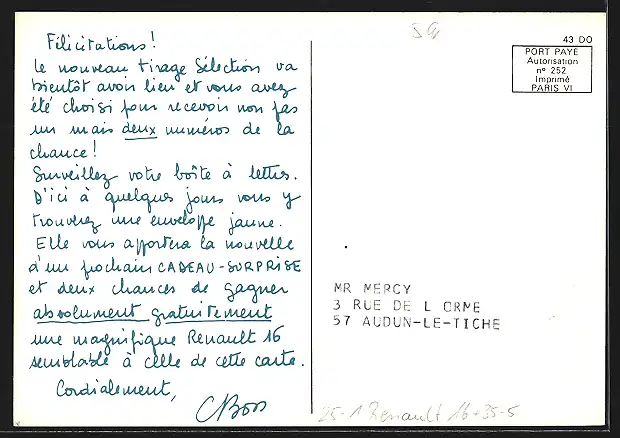 Félicitations!
Le nouveau tirage Sélection va
bientôt avoir lieu et vous avez
été choisi pour recevoir non pas
un mais deux numéros de la
chance!
Surveillez votre boîte à lettres.
D'ici à quelques jours vous y
trouverez une enveloppe jaune.
Elle vous apportera la nouvelle
d'un prochain CADEAU-SURPRISE
et deux chances de gagner
absolument gratuitement
une magnifique Renault 16
semblable à celle de cette carte.
Cordialement,
CBoss
43 DO
PORT PAYÉ
Autorisation
n° 252
Imprimé
PARIS VI
MR MERCY
3 RUE DE L ORME
57 AUDUN-LE-TICHE
25-1 Renault 16+35-5